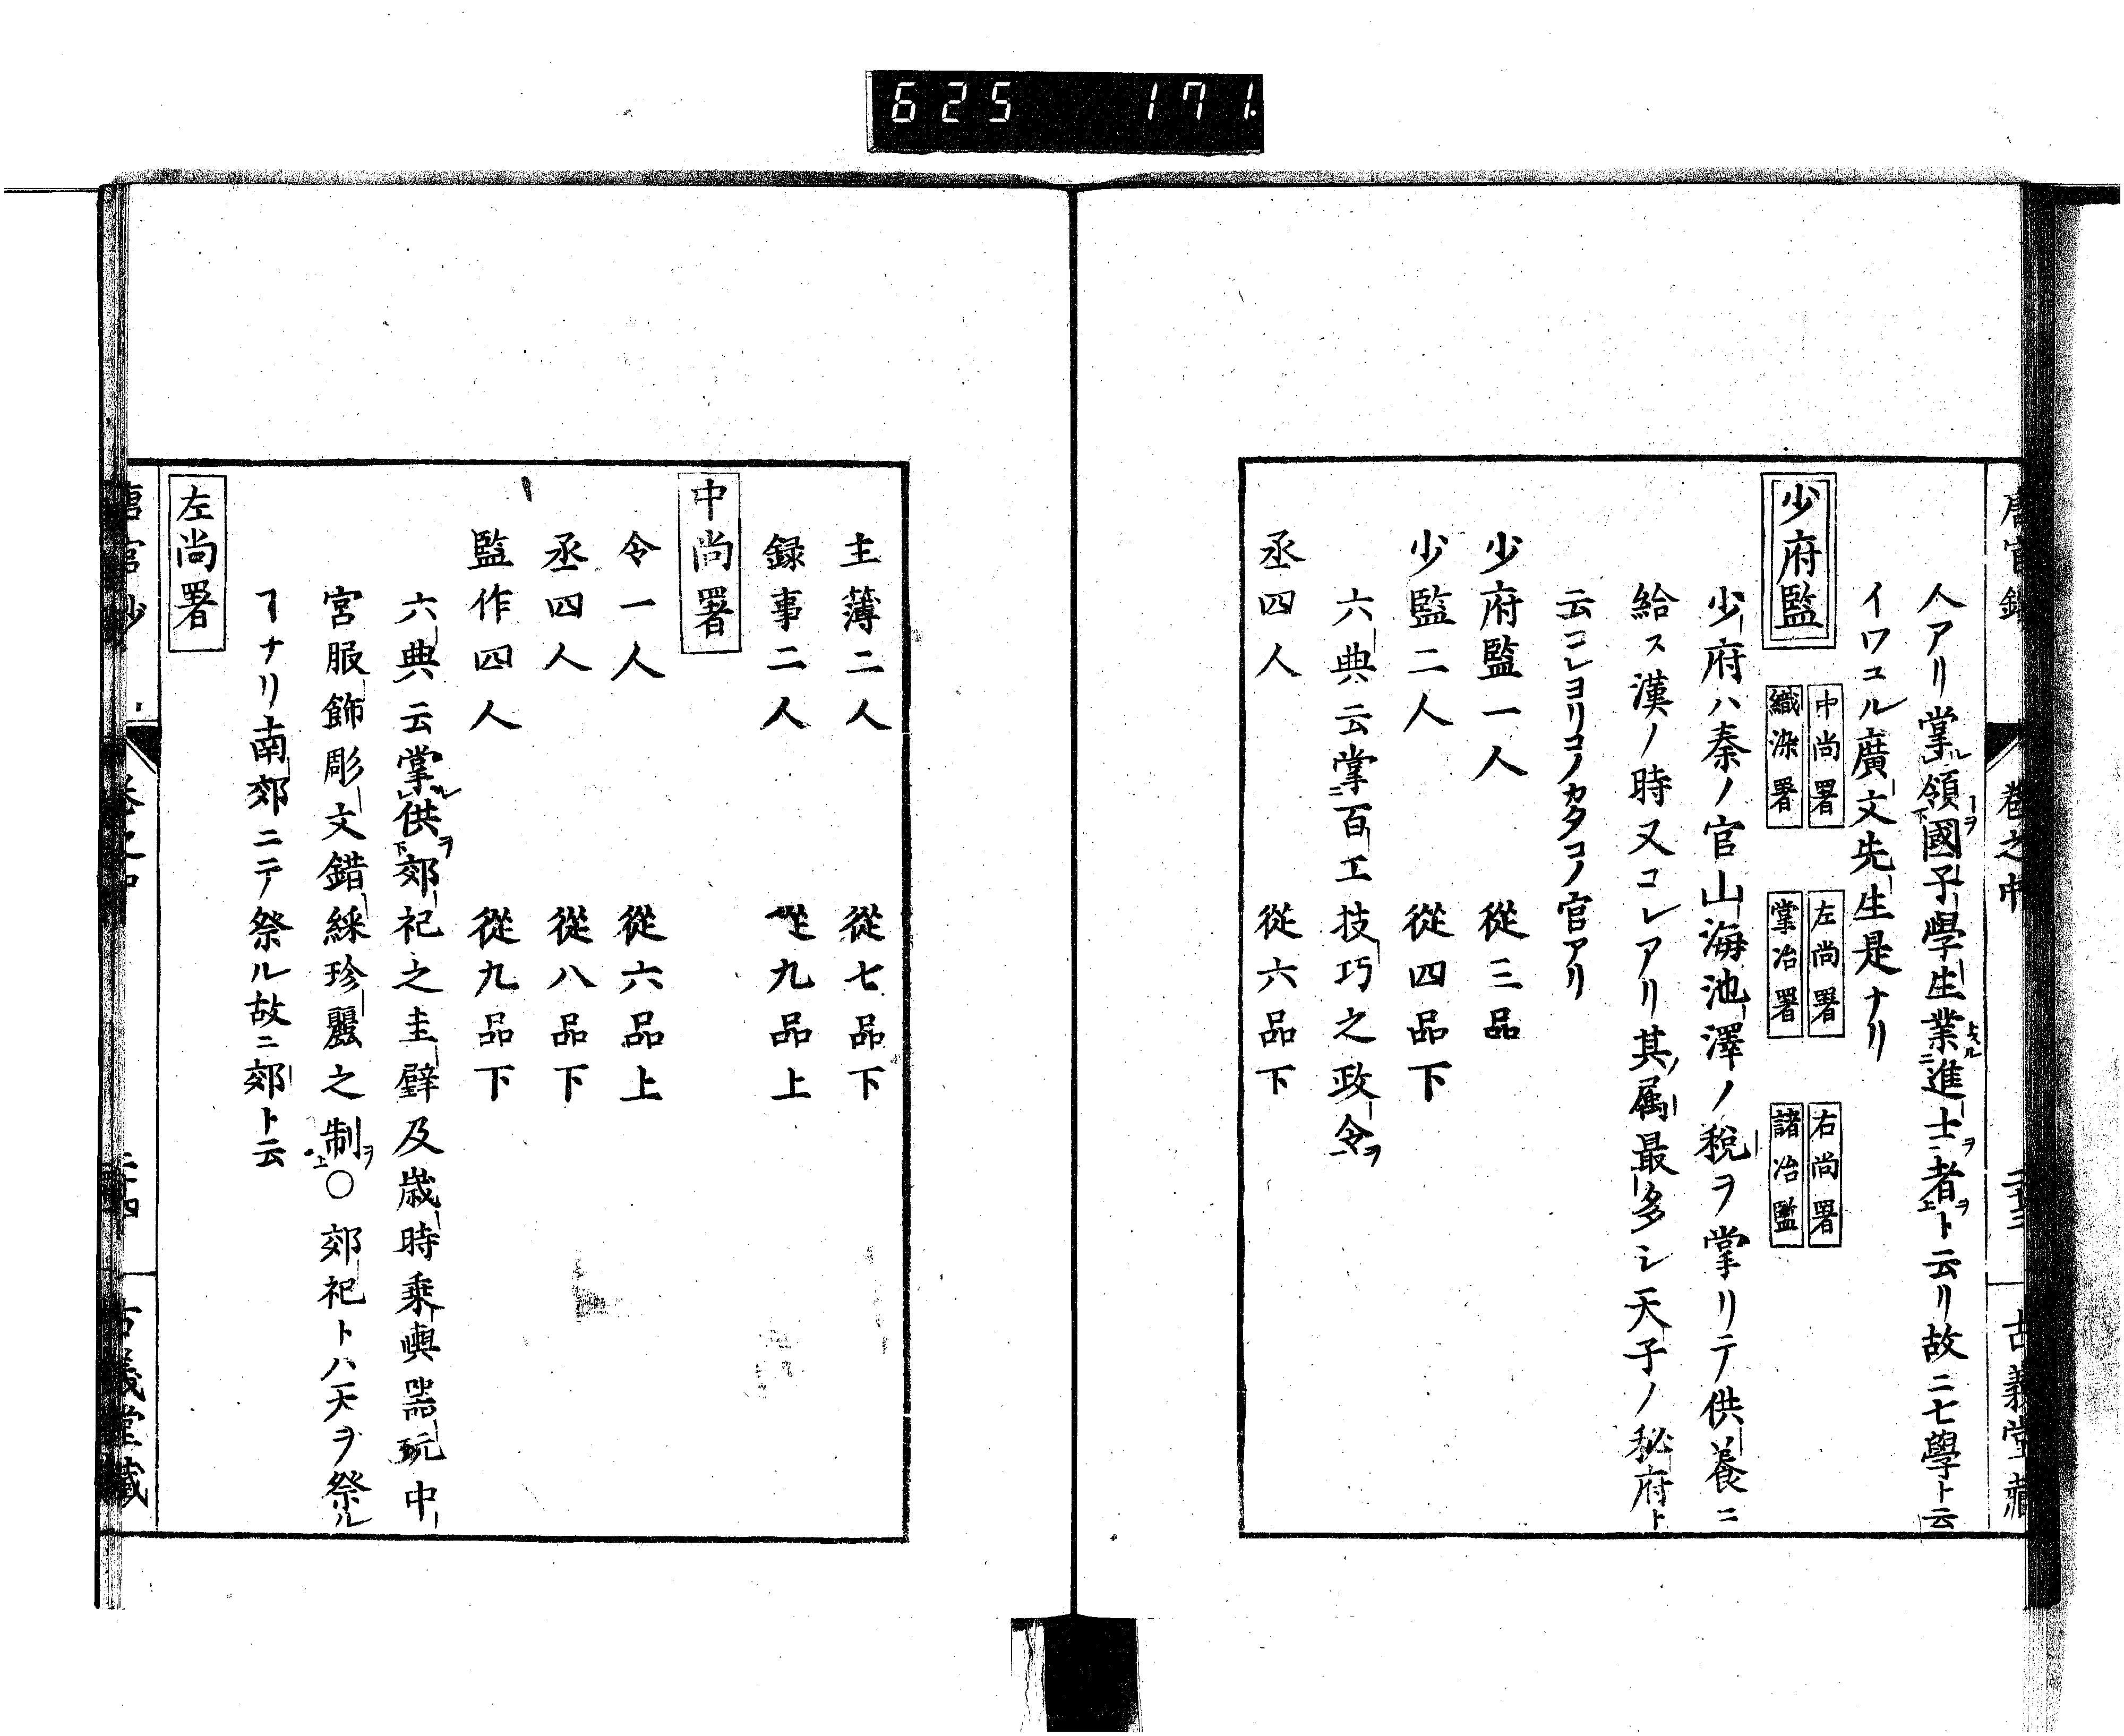 625 171.
人アリ掌領國子學生業進士者ト云リ故ニ七學ト云
イワユル廣文先生是ナリ
少府監
中尚署 左尚署 右尚署
織染署 掌冶署 諸冶監
少府ハ秦ノ官山海池澤ノ稅ヲ掌リテ供養ニ
給ス漢ノ時又コレアリ其属最多シ天子ノ秘府ト
云コレヨリコノカタコノ官アリ
少府監一人 從三品
少監二人 從四品下
六典云掌百工技巧之政令
丞四人 從六品下
主薄二人 從七品下
録事二人 從九品上
中尚署
令一人 從六品上
丞四人 從八品下
監作四人 從九品下
六典云掌供郊祀之圭璧及歳時乘輿噐玩中
宮服飾彫文錯綵珍麗之制○郊祀トハ天ヲ祭ル
ヿナリ南郊ニテ祭ル故ニ郊ト云
左尚署
卷之中
古義堂藏